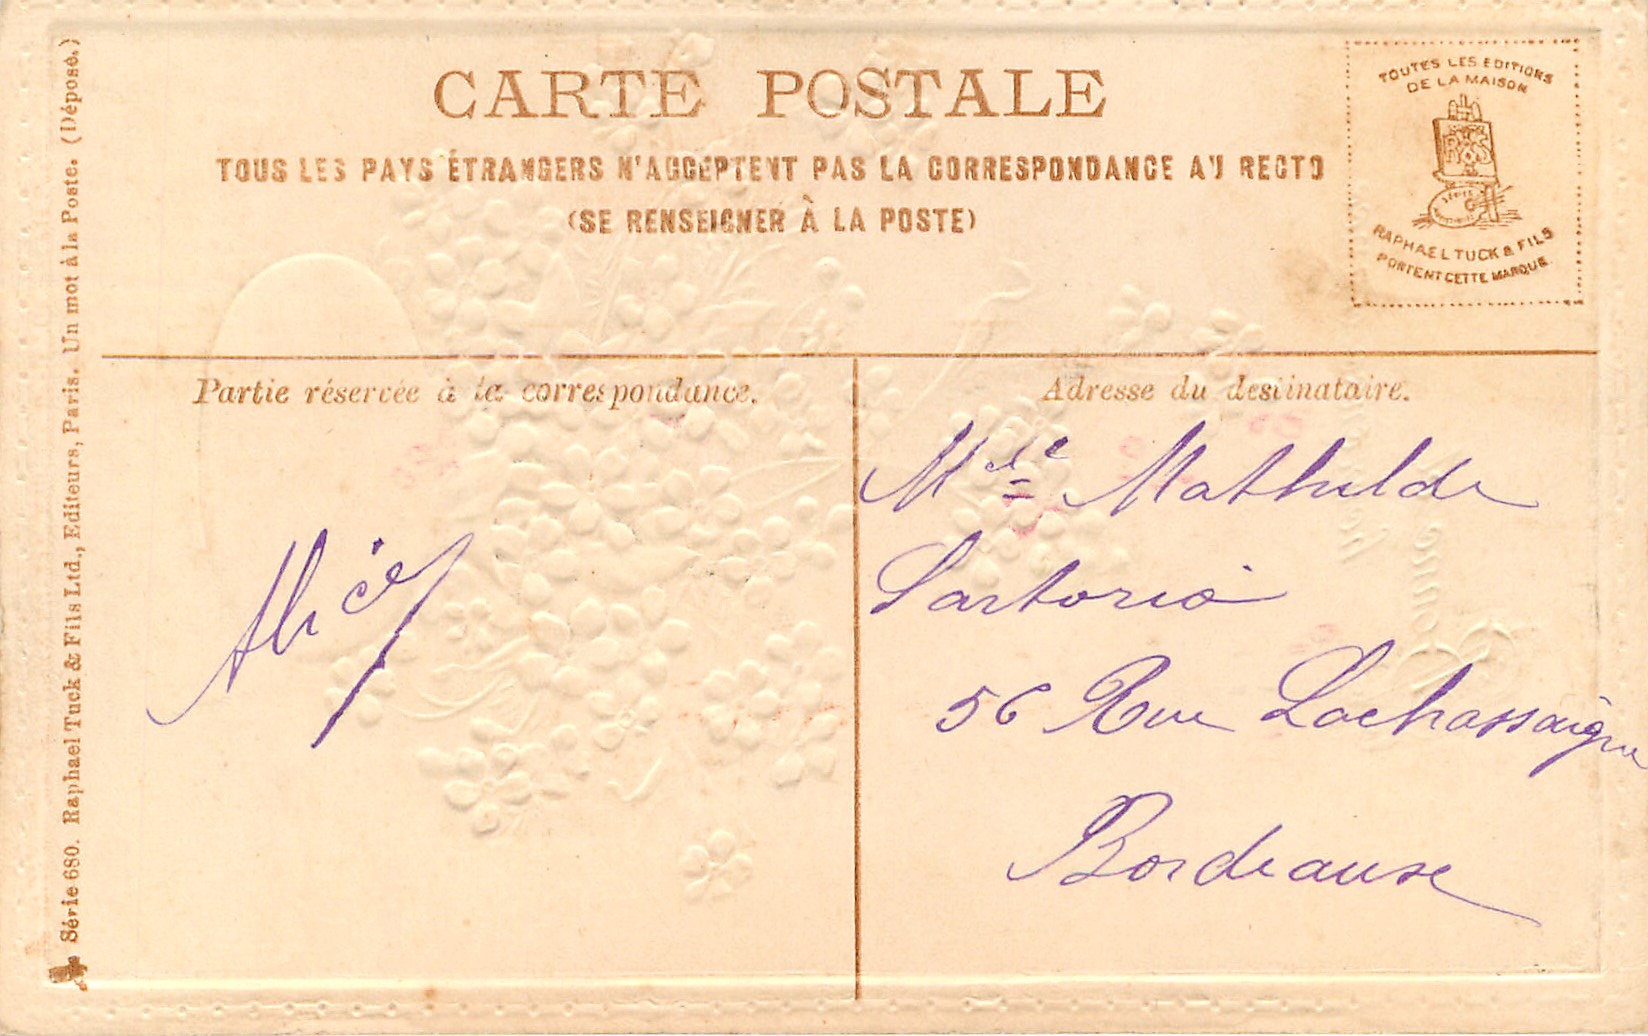 CARTE POSTALE
TOUS LES PAYS ÉTRANGERS N'ACCEPTENT PAS LA CORRESPONDANCE AU RECTO
(SE RENSEIGNER À LA POSTE)
TOUTES LES EDITIONS
DE LA MAISON
R & S
RAPHAEL TUCK & FILS
PORTENT CETTE MARQUE
Partie réservée à la correspondance.
Alice
Adresse du destinataire.
Mlle Mathilde
Sartorio
56 Rue Lachassaigne
Bordeaux
Série 680. Raphael Tuck & Fils Ltd., Editeurs, Paris. Un mot à la Poste. (Déposé.)